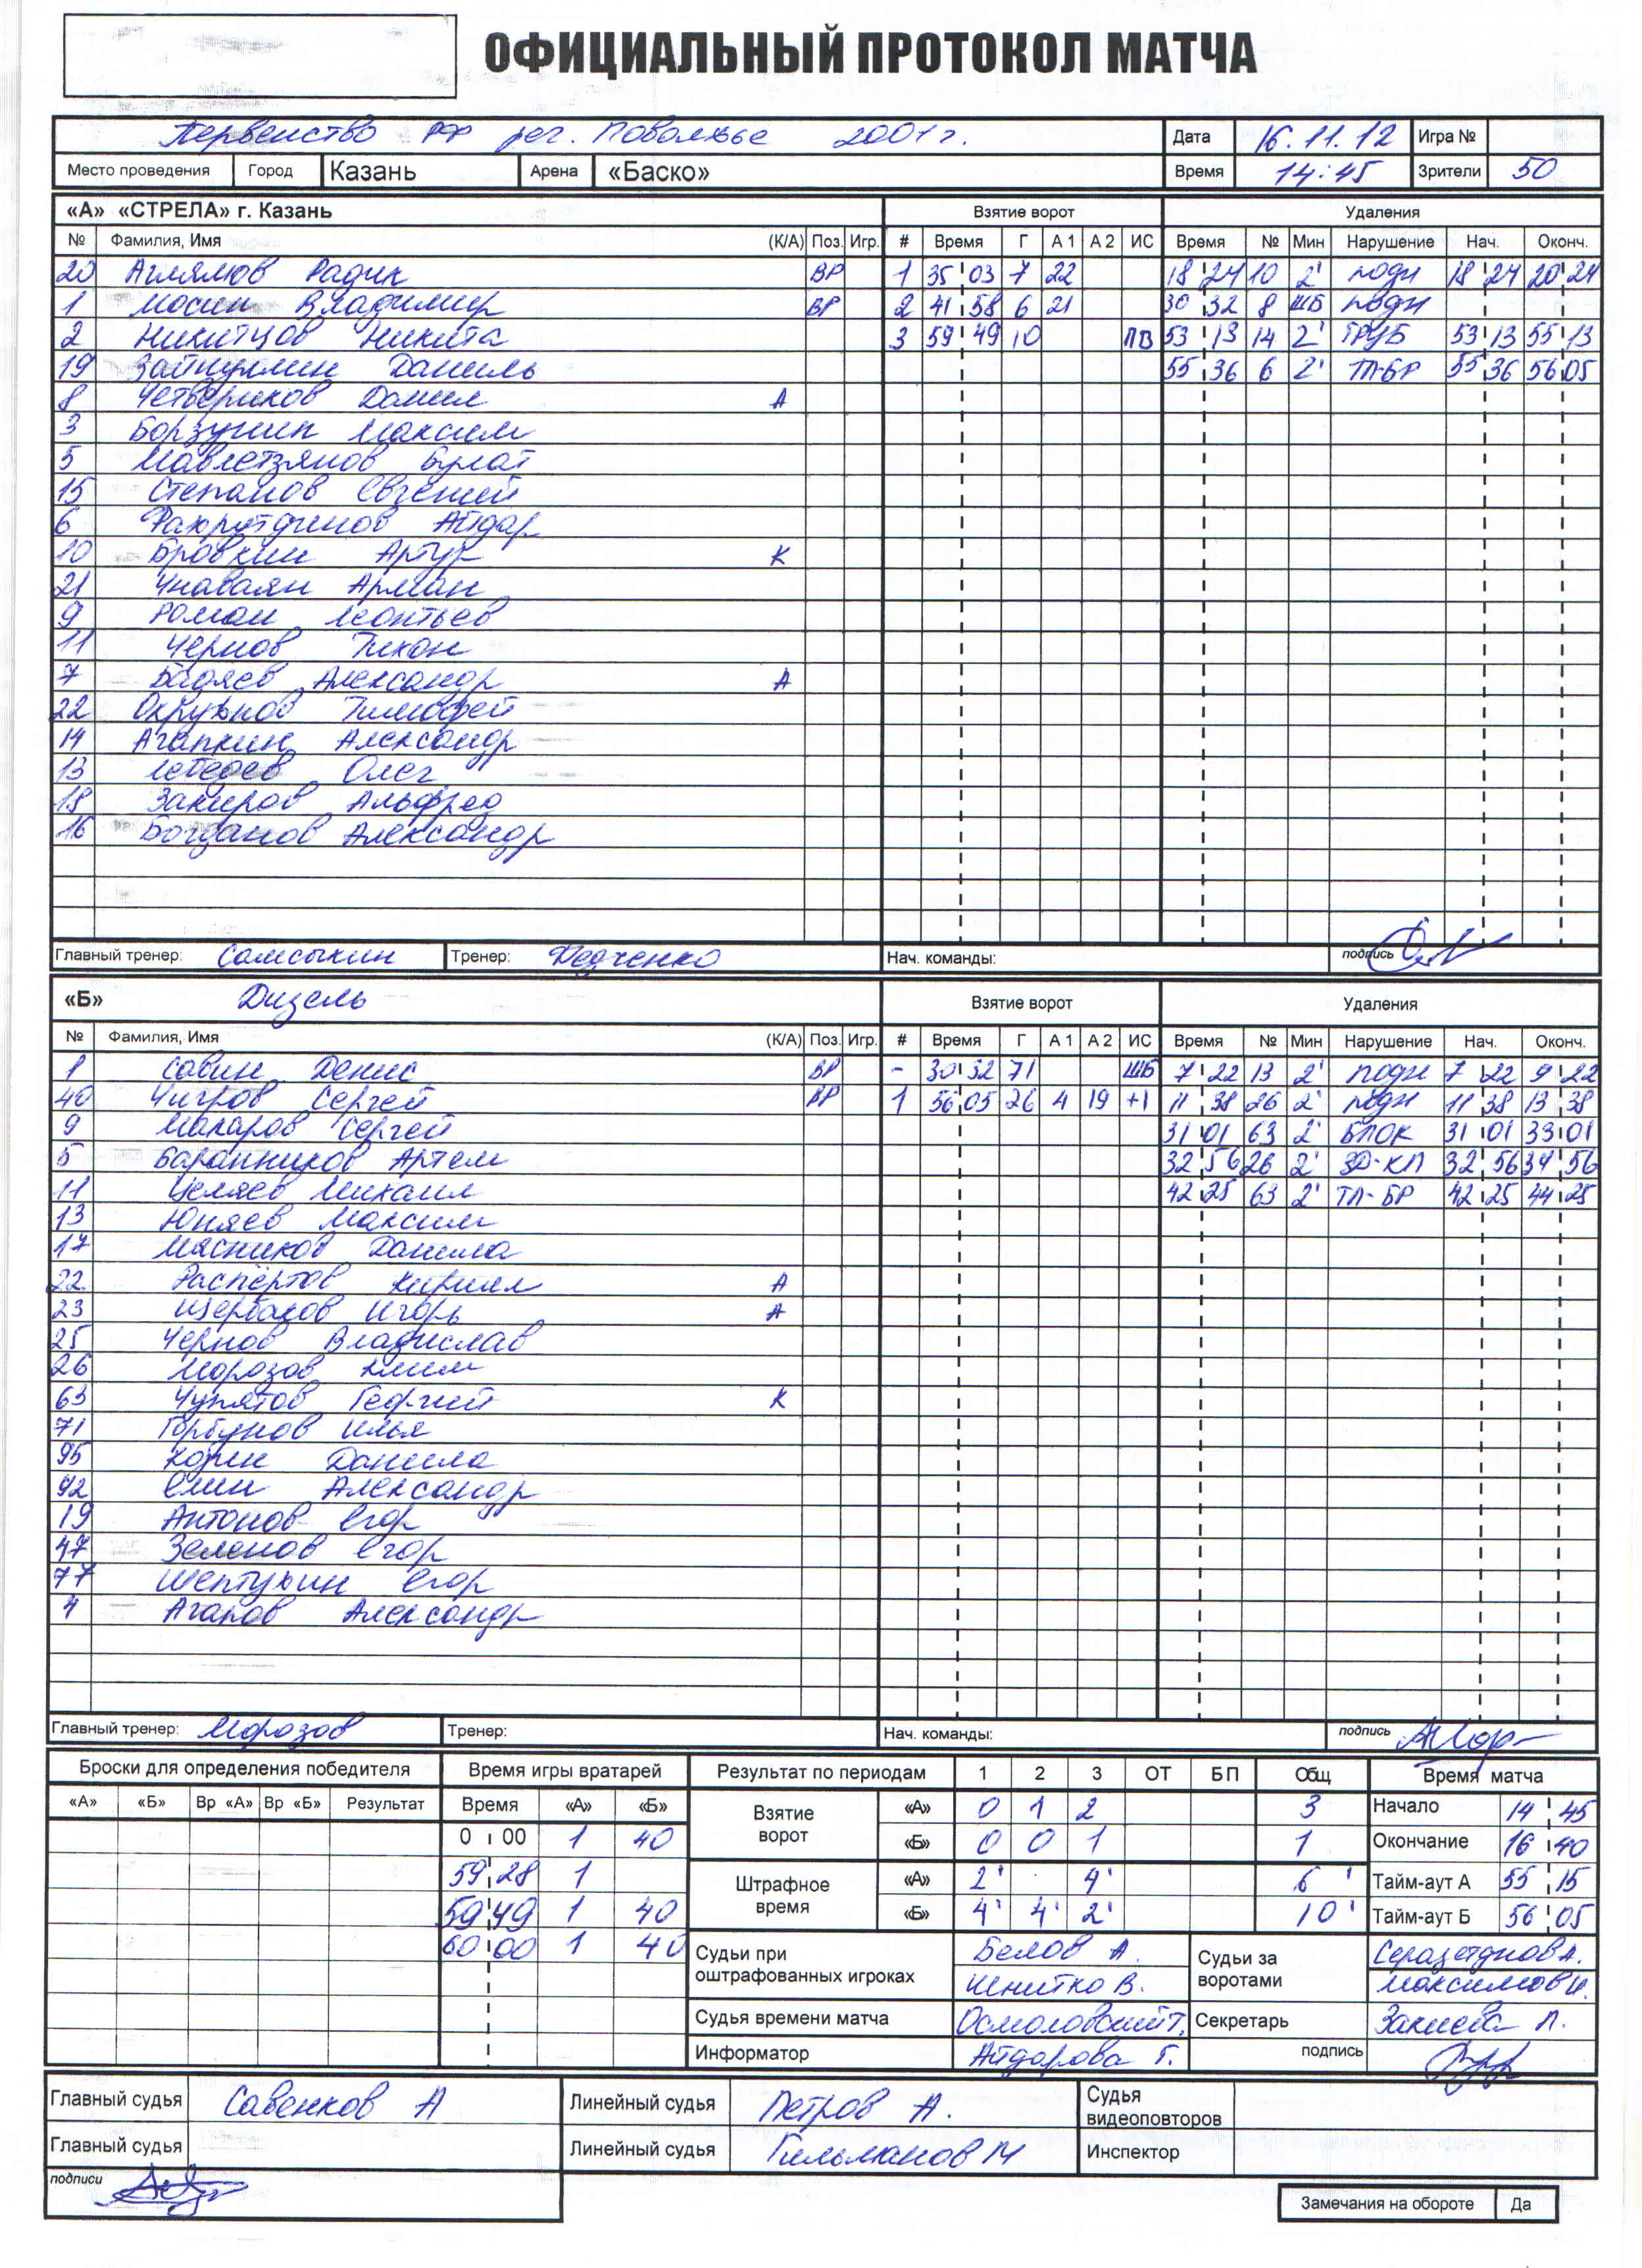 ОФИЦИАЛЬНЫЙ ПРОТОКОЛ МАТЧА
Первенство РФ рег. Поволжье 2001 г. Дата 16.11.12 Игра №
Место проведения Город Казань Арена «Баско» Время 14:45 Зрители 50
«А» «СТРЕЛА» г. Казань Взятие ворот Удаления
№ Фамилия, Имя (К/А) Поз. Игр. # Время Г А 1 А 2 ИС Время № Мин Нарушение Нач. Оконч.
20 Аглямов Радик ВР 1 35 03 7 22 18 24 10 2' подн 18 24 20 24
1 Мосин Владимир ВР 2 41 58 6 21 30 32 8 ШБ подн
2 Никитцов Никита 3 59 49 10 ПВ 53 13 14 2' ГРУБ 53 13 55 13
19 Зайнуллин Даниль 55 36 6 2' ТЛ-БР 55 36 56 05
8 Четвериков Данил А
3 Борзунин Максим
5 Мавлетзянов Булат
15 Степанов Евгений
6 Фахрутдинов Айдар
10 Бровкин Артур К
21 Унаваян Арман
9 Роман Леонтьев
11 Чернов Тихон
7 Бадяев Александр А
22 Тимофей
14 Агапкин Александр
13 Лебедев Олег
18 Закиров Альфред
16 Богданов Александр
Главный тренер: Самсыкин Тренер: Федченко Нач. команды: подпись
«Б» Дизель Взятие ворот Удаления
№ Фамилия, Имя (К/А) Поз. Игр. # Время Г А 1 А 2 ИС Время № Мин Нарушение Нач. Оконч.
1 Савин Денис ВР - 30 32 71 ШБ 7 22 13 2' подн 7 22 9 22
40 Чигров Сергей ВР 1 56 05 26 4 19 +1 11 38 26 2' подн 11 38 13 38
9 Макаров Сергей 31 01 63 2' БЛОК 31 01 33 01
5 Баранников Артем 32 56 26 2' ЗД-КЛ 32 56 34 56
11 Целяев Михаил 42 25 63 2' ТЛ-БР 42 25 44 25
13 Юняев Максим
17 Мясников Данила
22 Распёртов Кирилл А
23 Щербаков Игорь А
25 Чернов Владислав
26 Морозов Клим
63 Чупятов Георгий К
71 Горбунов Илья
95 Корин Данила
92 Елин Александр
19 Антонов Егор
47 Зеленов Егор
77 Шептунин Егор
4 Агапов Александр
Главный тренер: Морозов Тренер: Нач. команды: подпись
Броски для определения победителя Время игры вратарей Результат по периодам 1 2 3 ОТ БП Общ Время матча
«А» «Б» Вр «А» Вр «Б» Результат Время «А» «Б» Взятие ворот «А» 0 1 2 3 Начало 14 45
0 00 1 40 «Б» 0 0 1 1 Окончание 16 40
59 28 1 Штрафное время «А» 2' 4' 6' Тайм-аут А 55 15
59 49 1 40 «Б» 4' 4' 2' 10' Тайм-аут Б 56 05
60 00 1 40 Судьи при оштрафованных игроках Белов А. Судьи за воротами
Шнитко В. Максимов И.
Судья времени матча Осмоловский Т. Секретарь Закиева Л.
Информатор Айдарова Г. подпись
Главный судья Савенков А Линейный судья Петров А. Судья видеоповторов
Главный судья Линейный судья Гильманов М Инспектор
подписи
Замечания на обороте Да